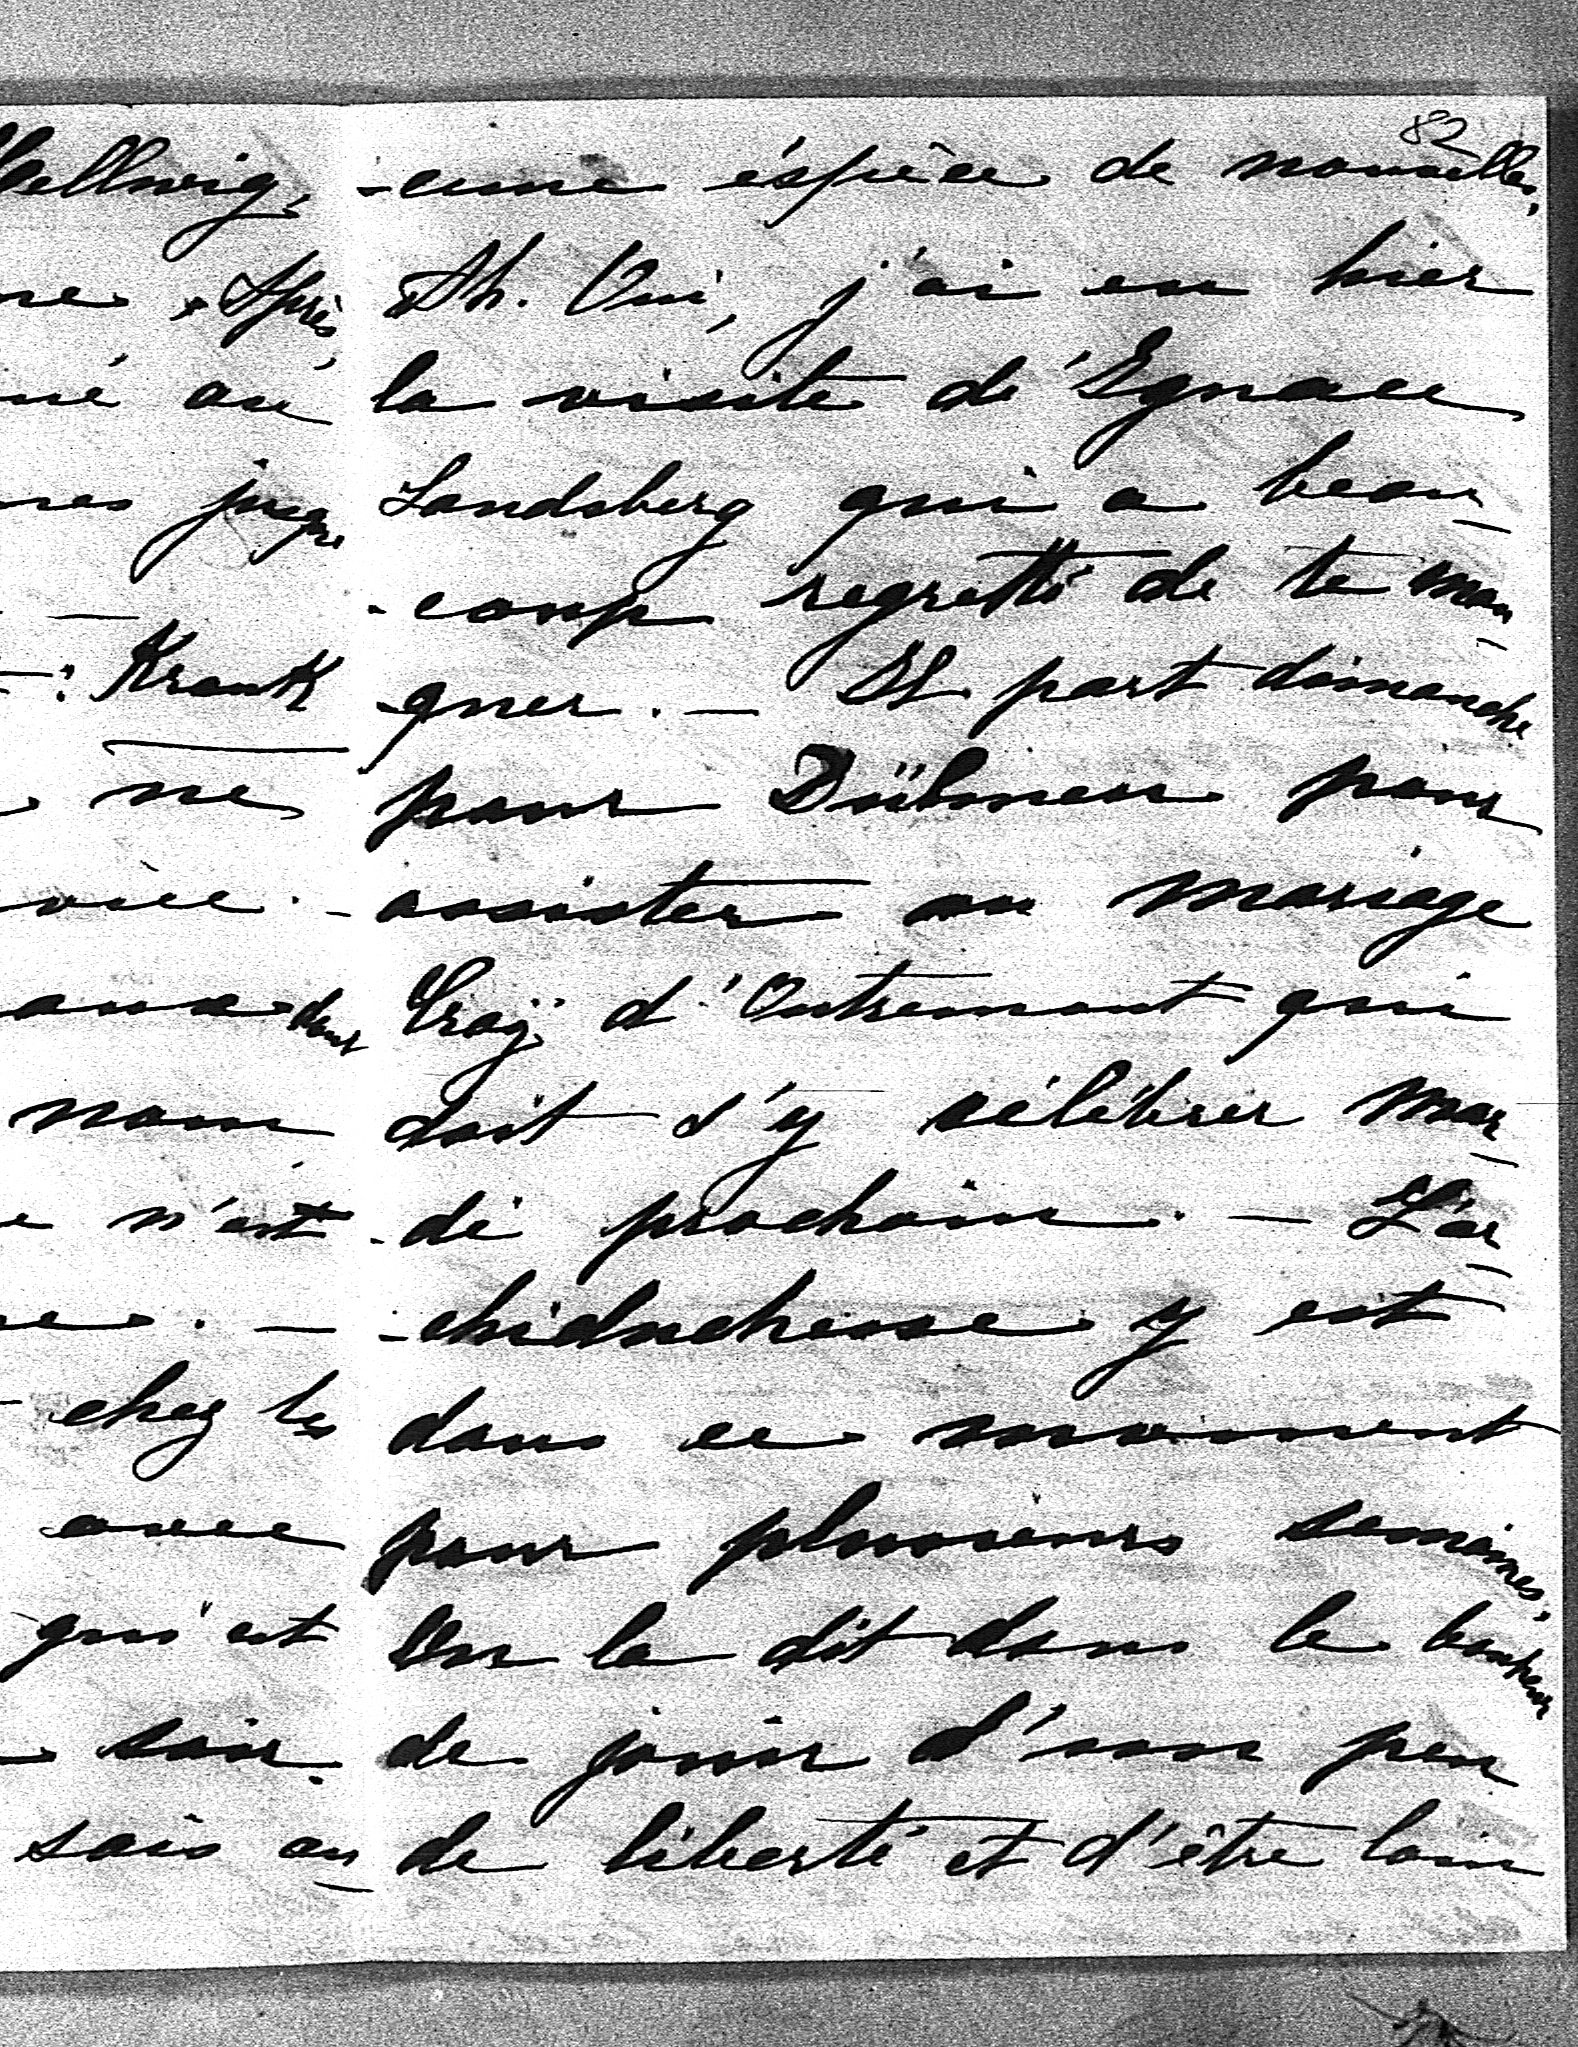 82
Hellwig,
ne. Après
né au
mes jusque
: Krank
ne
voice. –
aux dont
nom
e n'est
chez les
avec
qui est
soir.
sais au
-cune éspèce de nouvelles,
Ah. Oui, j'ai eu hier
la visite de' Ignace
Landsberg qui a beau-
-coup regretté de te man-
-quer. — Il part dimanche
pour Dülmen pour
assister au mariage
Croÿ d'Outremont qui
doit s'y célébrer mar-
-di prochain. — L'ar-
-chiduchesse y est
dans ce moment
pour plusieurs semaines,
On la dit dans le bonheur
de jouir d'un peu
de liberté et d'être loin